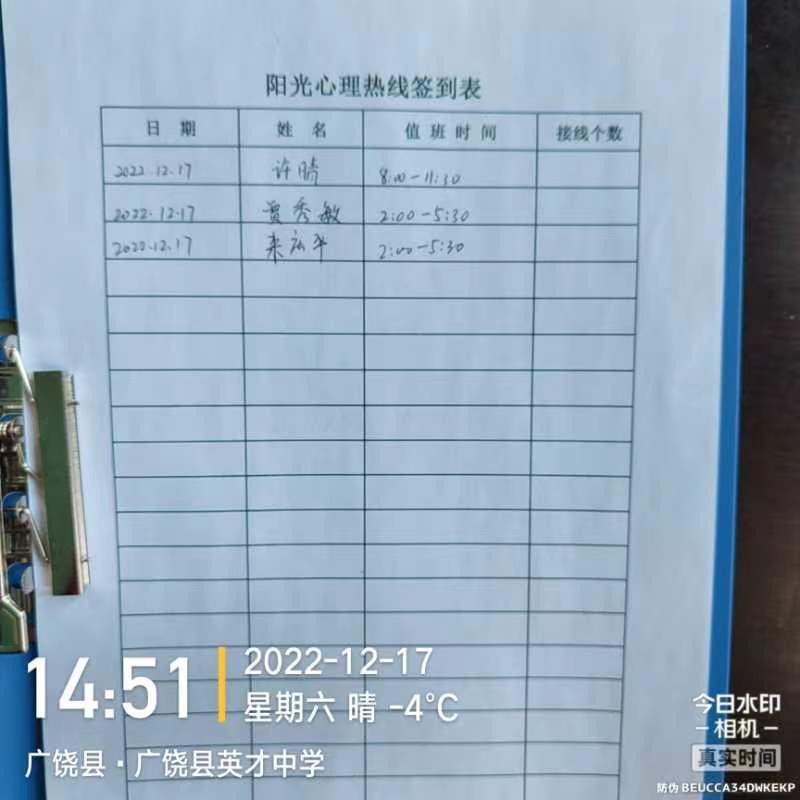 阳光心理热线签到表
日 期 姓 名 值 班 时 间 接线个数
2022.12.17 许晴 8:00-11:30
2022.12.17 贾秀敏 2:00-5:30
2022.12.17 来云平 2:00-5:30
14:51
2022-12-17
星期六 晴 -4℃
广饶县·广饶县英才中学
今日水印
-相机-
真实时间
防伪 BEUCCA34DWKEKP